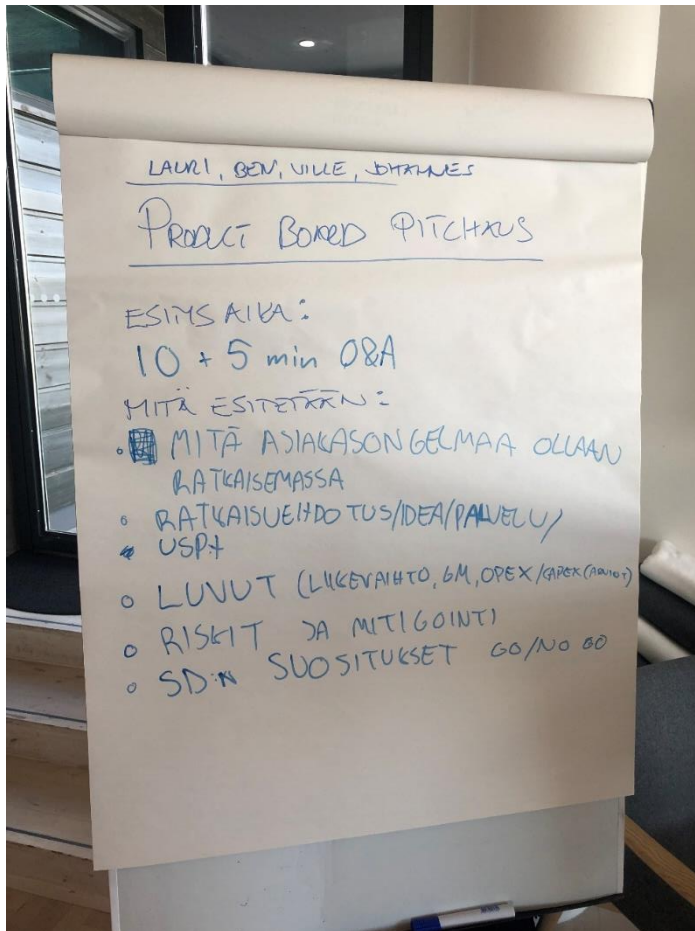 LAURI, BEN, VILLE, JOHANNES
PRODUCT BOARD PITCHAUS
ESITYSAIKA:
10 + 5 min Q&A
MITÄ ESITETÄÄN:
MITÄ ASIAKASONGELMAA OLLAAN
RATKAISEMASSA
RATKAISUEHDOTUS/IDEA/PALVELU/
USP:t
LUVUT (LIIKEVAIHTO, GM, OPEX/CAPEX (ARVIOT)
RISKIT JA MITIGOINTI
SD:N SUOSITUKSET GO/NO GO